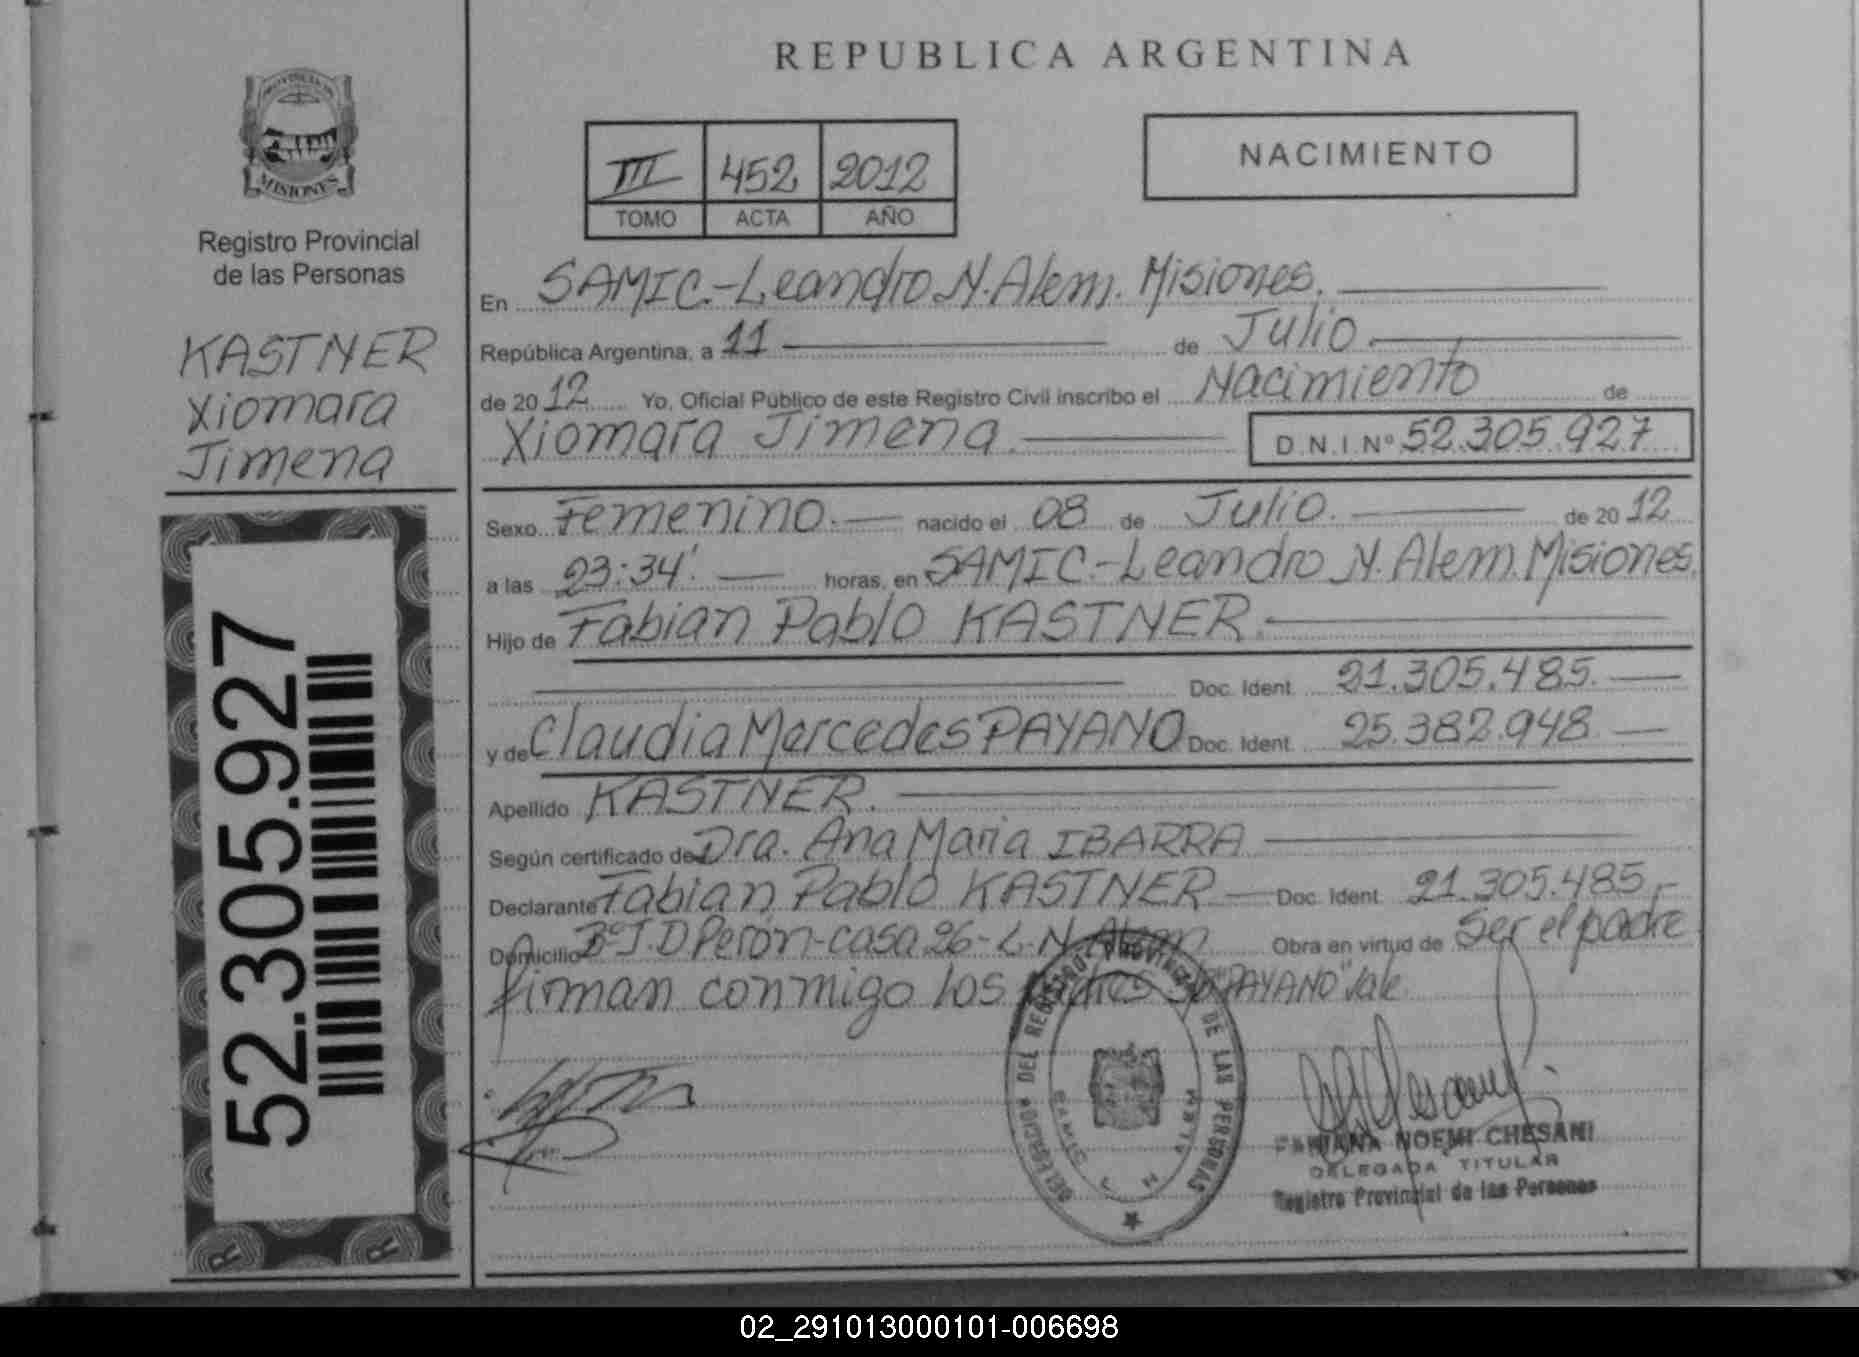 REPUBLICA ARGENTINA
PROVINCIA DE
MISIONES
Registro Provincial
de las Personas
KASTNER
Xiomara
Jimena
52.305.927
R
R
III 452 2012
TOMO ACTA AÑO
NACIMIENTO
En SAMIC.-Leandro N. Alem. Misiones.
República Argentina, a 11 de Julio.
de 2012 Yo, Oficial Público de este Registro Civil inscribo el Nacimiento de
Xiomara Jimena. D.N.I.Nº 52.305.927
Sexo Femenino. nacido el 08 de Julio. de 2012
a las 23:34'. horas, en SAMIC.-Leandro N. Alem. Misiones.
Hijo de Fabian Pablo KASTNER.
Doc. Ident. 21.305.485.
y de Claudia Mercedes PAYANO Doc. Ident. 25.382.948.
Apellido KASTNER.
Según certificado de Dra. Ana Maria IBARRA
Declarante Fabian Pablo KASTNER Doc. Ident. 21.305.485.-
Domicilio Bº J.D Perón-casa 26-L.N. Alem Obra en virtud de Ser el padre
firman conmigo los padres "PAYANO" Vale
DELEGACION DEL REGISTRO PROVINCIAL DE LAS PERSONAS
SAMIC L N ALEM
FABIANA NOEMI CHESANI
DELEGADA TITULAR
Registro Provincial de las Personas
02_291013000101-006698